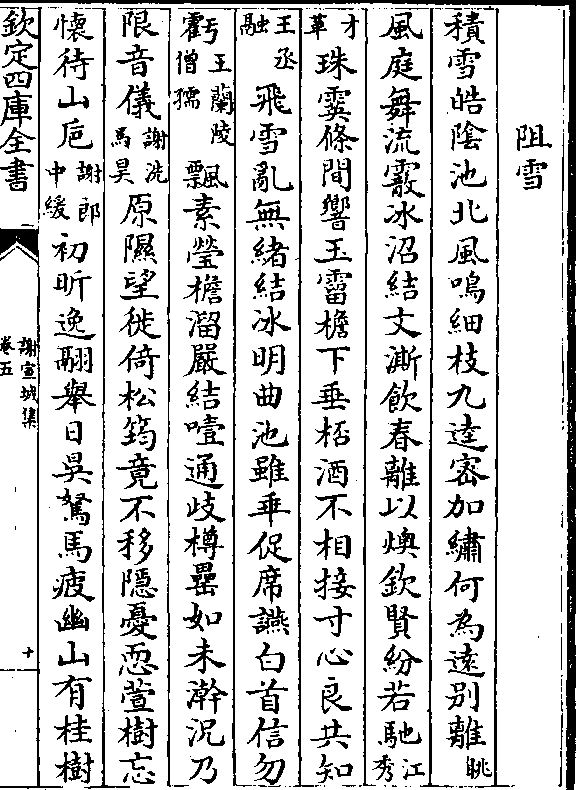 阻雪
積雪皓陰池北風鳴細枝九逵密加繡何為遠別離眺
風庭舞流霰冰沼結文澌飲春雖以燠欽賢紛若馳江秀
才革珠霙條間響玉霤檐下垂桮酒不相接寸心良共知
王丞融飛雪亂無緒結冰明曲池雖乖促席讌白首信勿
虧王蘭陵僧孺飄素瑩檐溜嚴結噎通岐樽罍如未澣況乃
限音儀謝洗馬昊原隰望徙倚松筠竟不移隱憂恧萱樹忘
懷待山巵謝郎中緩初昕逸翮舉日昃駑馬疲幽山有桂樹
欽定四庫全書
謝宣城集
卷五
十